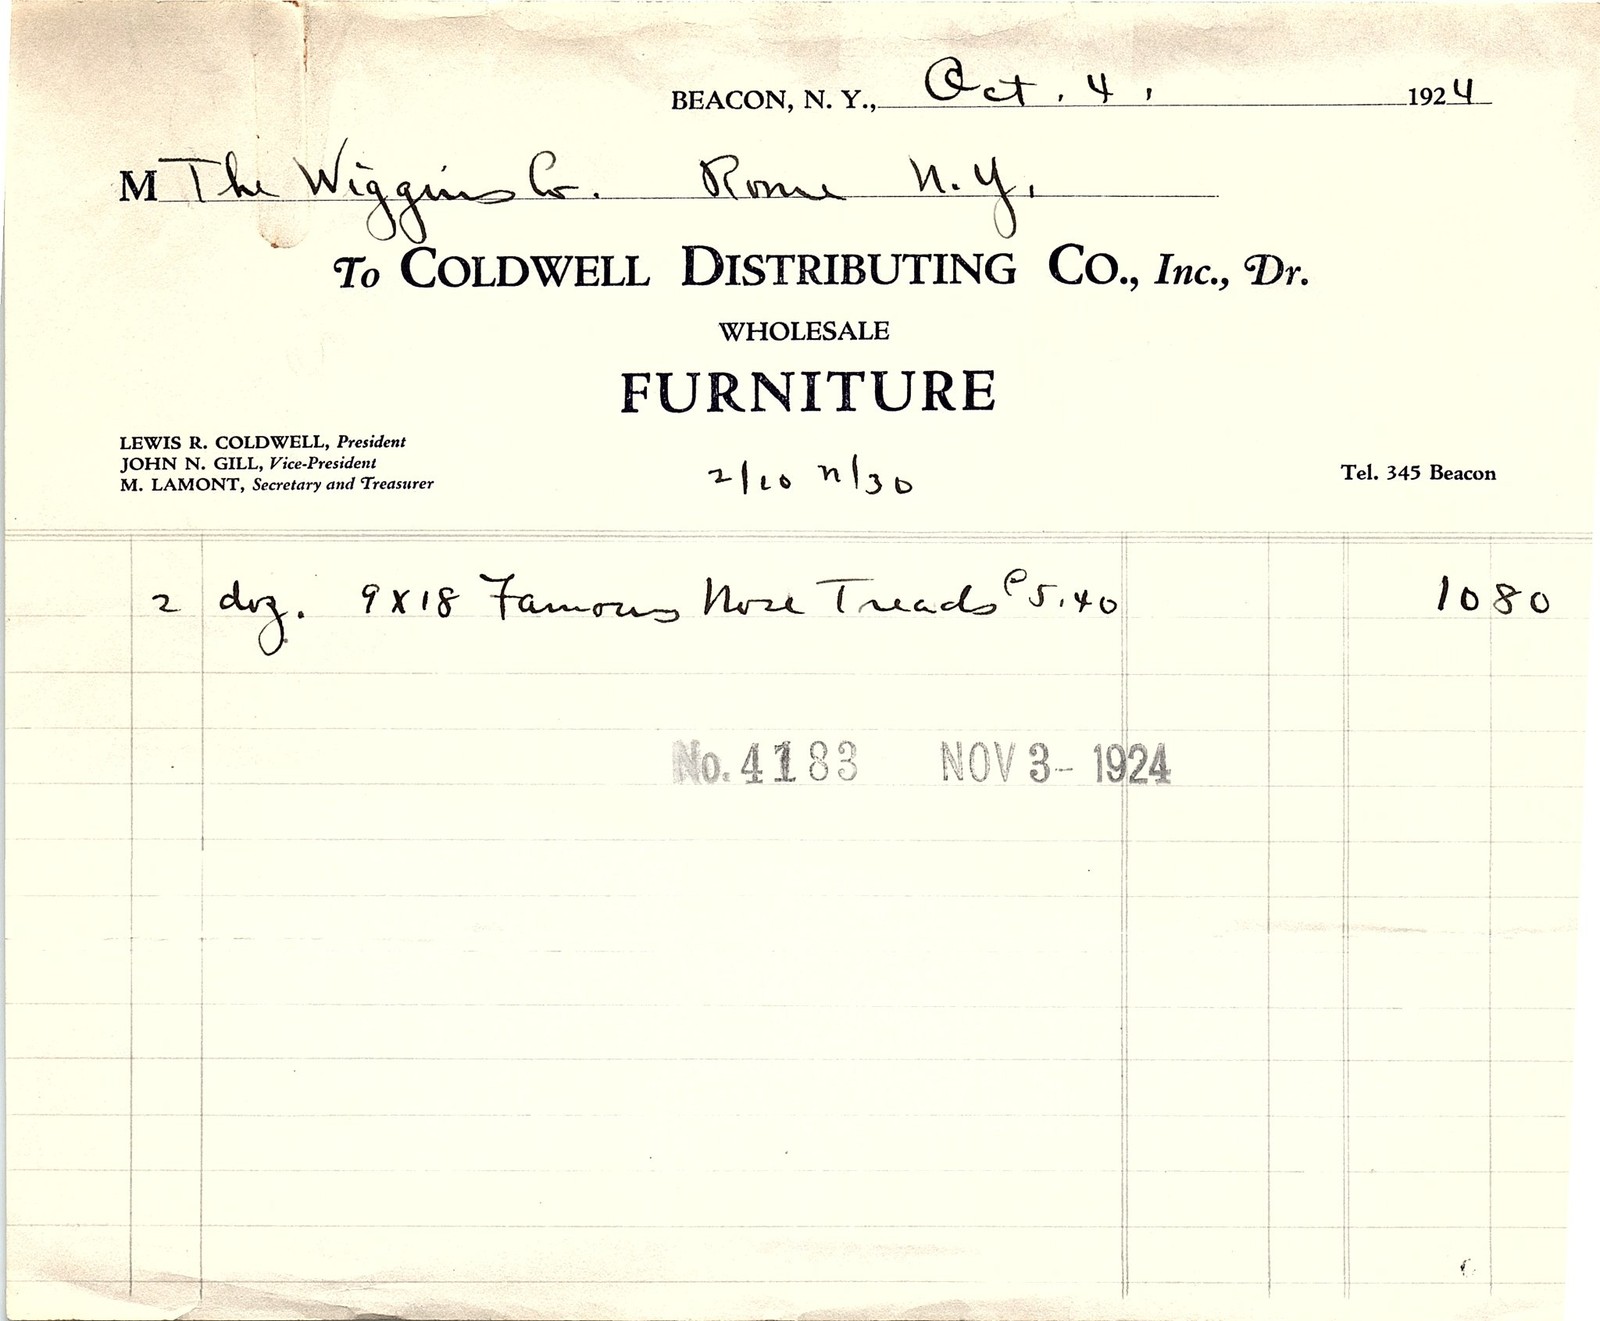 BEACON, N. Y., Oct. 4, 1924
M The Wiggins Co. Rome N.Y.
To COLDWELL DISTRIBUTING CO., Inc., Dr.
WHOLESALE
FURNITURE
LEWIS R. COLDWELL, President
JOHN N. GILL, Vice-President
M. LAMONT, Secretary and Treasurer
2/10 n/30
Tel. 345 Beacon
2 doz. 9X18 Famous Nose Treads @ 5.40 10 80
No. 4183 NOV 3- 1924